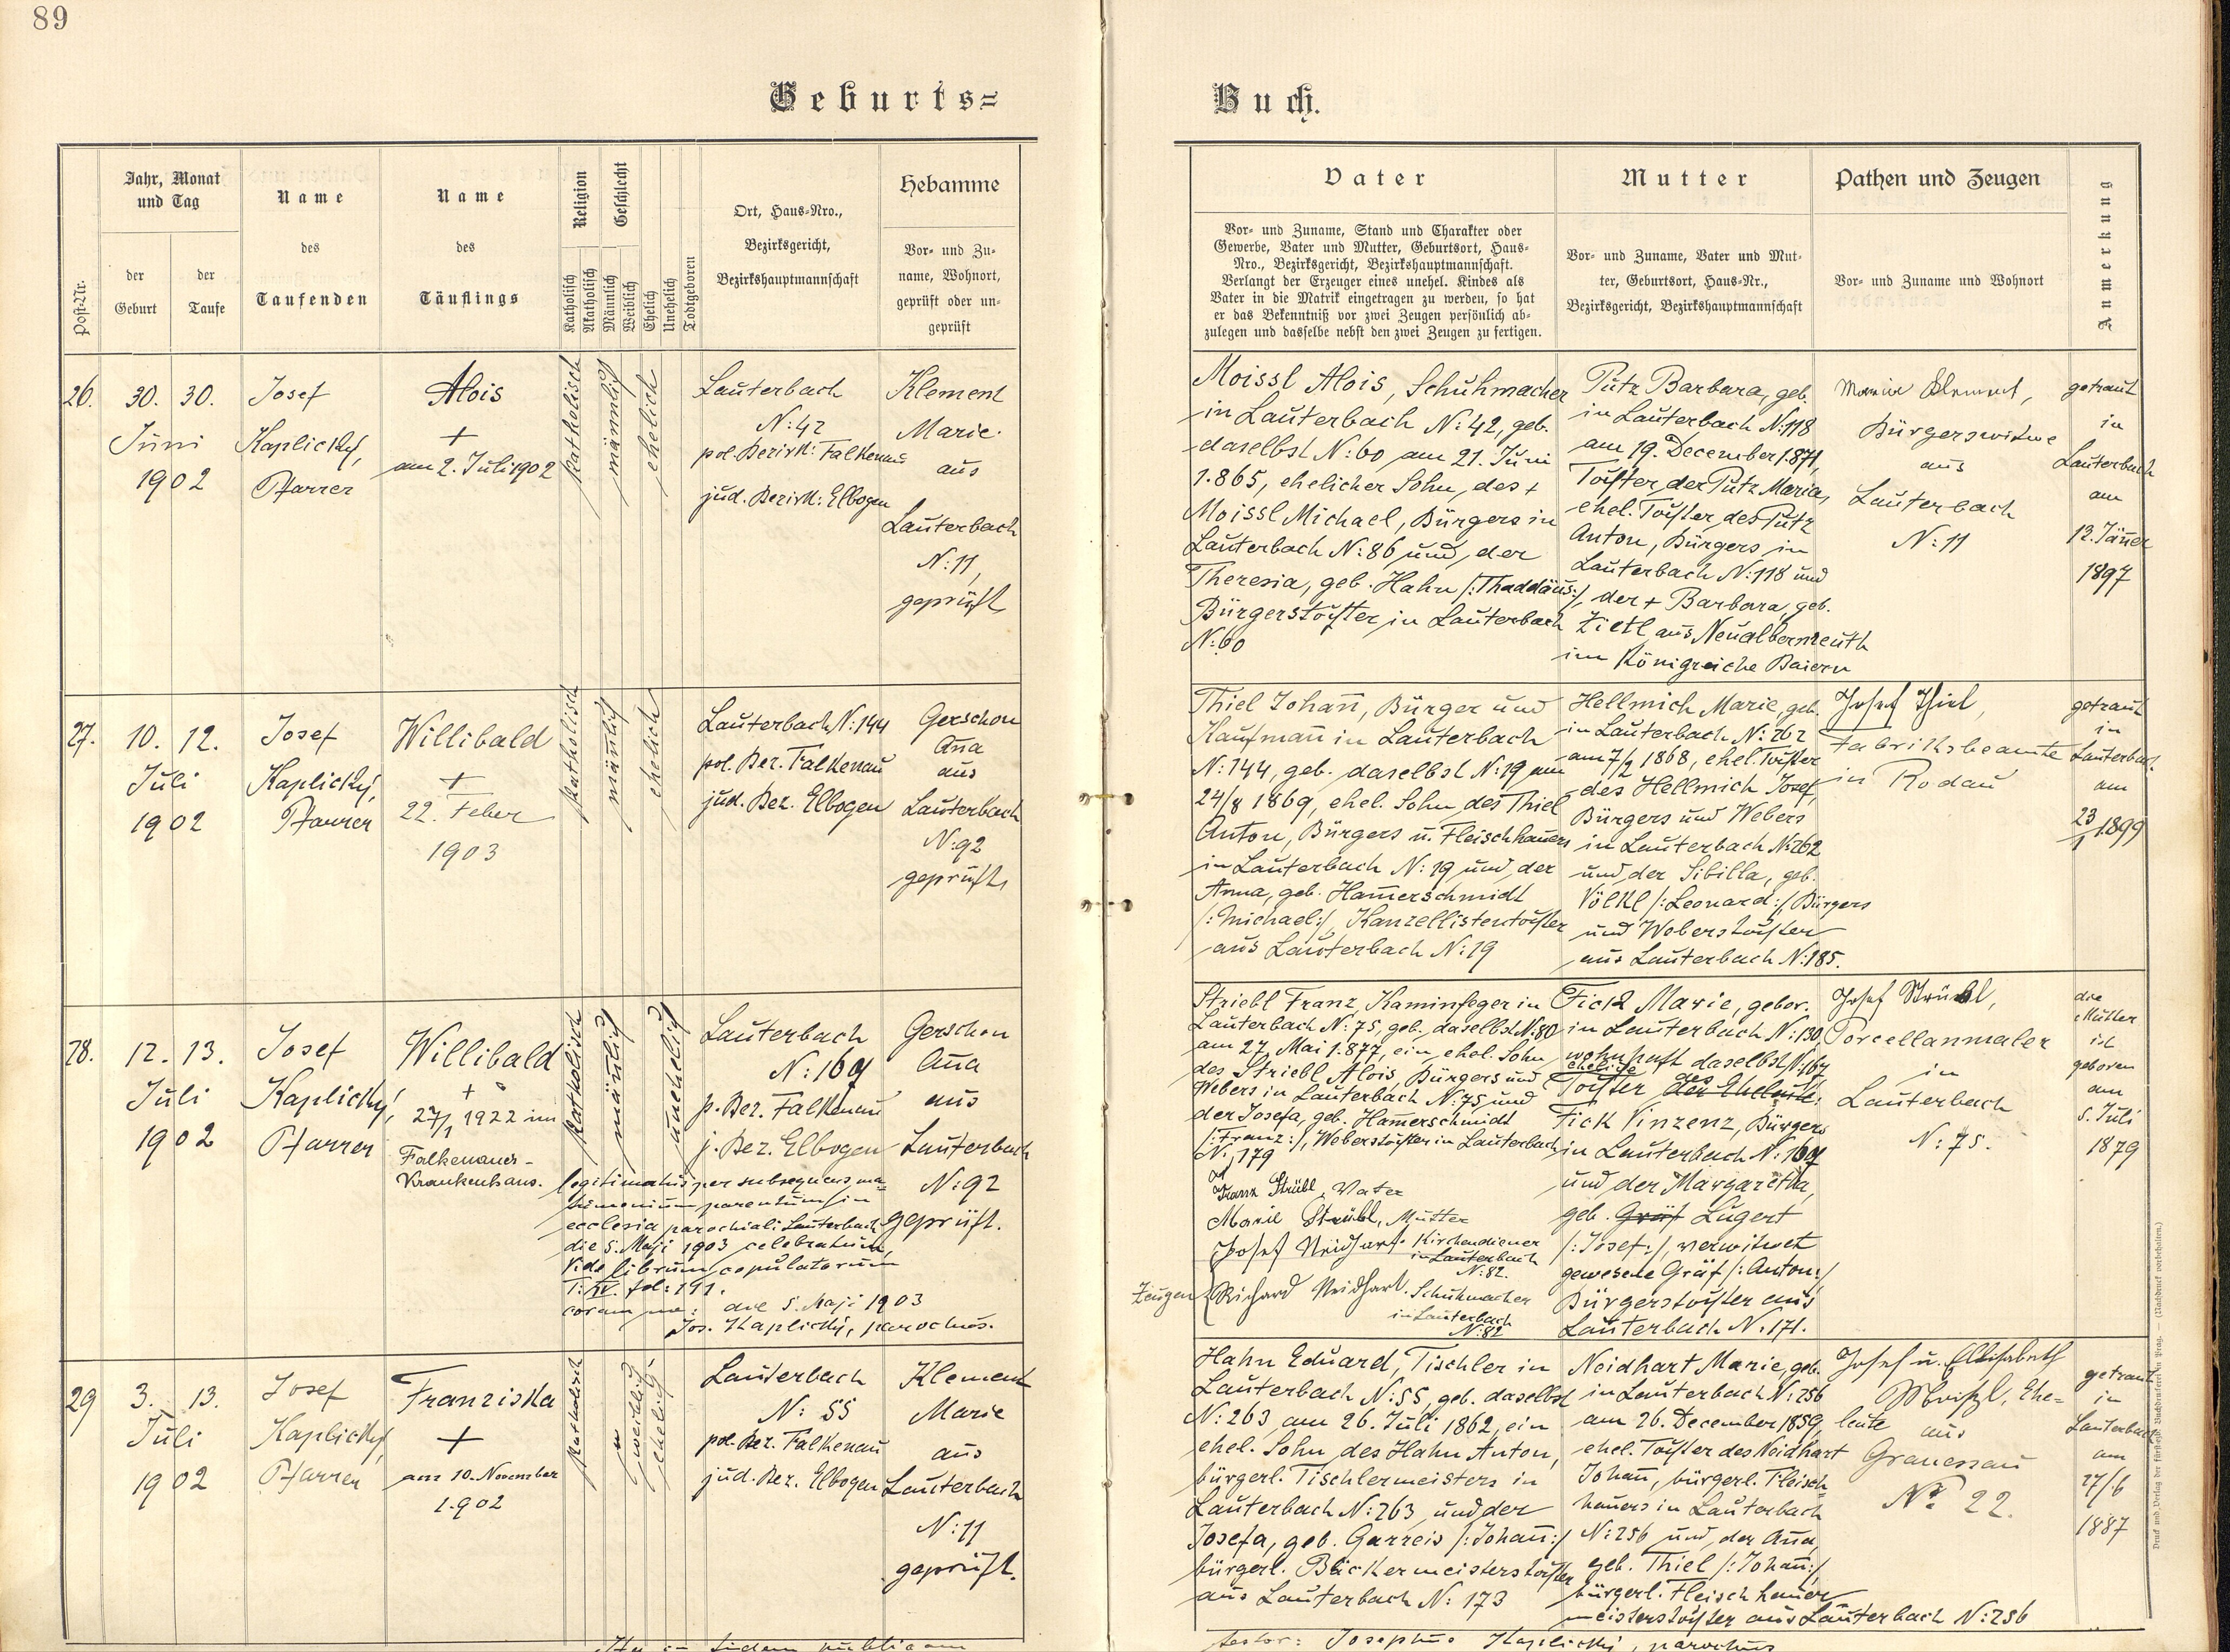 89
Geburts=
Buch.
Post-Nr.
Jahr, Monat
und Tag
der
Geburt
der
Taufe
Name
des
Taufenden
Name
des
Täuflings
Religion
Katholisch
Akatholisch
Geschlecht
Männlich
Weiblich
Ehelich
Unehelich
Todtgeboren
Ort, Haus-Nro.,
Bezirksgericht,
Bezirkshauptmannschaft
Hebamme
Vor- und Zu-
name, Wohnort,
geprüft oder un-
geprüft
Vater
Vor- und Zuname, Stand und Charakter oder
Gewerbe, Vater und Mutter, Geburtsort, Haus-
Nro., Bezirksgericht, Bezirkshauptmannschaft.
Verlangt der Erzeuger eines unehel. Kindes als
Vater in die Matrik eingetragen zu werden, so hat
er das Bekenntniß vor zwei Zeugen persönlich ab-
zulegen und dasselbe nebst den zwei Zeugen zu fertigen.
Mutter
Vor- und Zuname, Vater und Mut-
ter, Geburtsort, Haus-Nr.,
Bezirksgericht, Bezirkshauptmannschaft
Pathen und Zeugen
Vor- und Zuname und Wohnort
Anmerkung
26.
30. 30.
Juni
1902
Josef
Kaplický,
Pfarrer
Alois
+
am 2. Juli 1902
katholisch
männlich
ehelich
Lauterbach
N: 42
pol. Bezirk: Falkenau
jud. Bezirk: Elbogen
Klement
Marie
aus
Lauterbach
N: 11,
geprüft
Moissl Alois, Schuhmacher
in Lauterbach N: 42, geb.
daselbst N: 60 am 21. Juni
1.865, ehelicher Sohn, des +
Moissl Michael, Bürgers in
Lauterbach N: 86 und der
Theresia, geb. Hahn /:Thaddäus:/,
Bürgerstochter in Lauterbach
N: 60
Putz Barbara, geb.
in Lauterbach N: 118
am 19. December 1.871,
Tochter der Putz Maria,
ehel. Tochter des Putz
Anton, Bürgers in
Lauterbach N: 118 und
der + Barbara, geb.
Zietl aus Neualbenreuth
im Königreiche Baiern
Maria Klement,
Bürgerswitwe
aus
Lauterbach
N: 11
getraut
in
Lauterbach
am
12. Jäner
1897
27.
10. 12.
Juli
1902
Josef
Kaplický,
Pfarrer
Willibald
+
22. Feber
1903
katholisch
mänlich
ehelich
Lauterbach N: 144
pol. Bez. Falkenau
jud. Bez. Elbogen
Gerschon
Ana
aus
Lauterbach
N: 92
geprüft
Thiel Johan, Bürger und
Kaufman in Lauterbach
N: 144, geb. daselbst N: 19 am
24/8 1869, ehel. Sohn des Thiel
Anton, Bürgers u. Fleischhauers
in Lauterbach N: 19 und der
Anna, geb. Hamerschmidt
/:Michael:/, Kanzellistentochter
aus Lauterbach N: 19
Hellmich Marie, geb.
in Lauterbach N: 262
am 7/2 1868, ehel. Tochter
des Hellmich Josef,
Bürgers und Webers
in Lauterbach N: 262
und der Sibilla, geb.
Völkl /:Leonard:/, Bürgers
und Weberstochter
aus Lauterbach N: 185.
Josef Thiel,
Fabriksbeamte
in Rodau
getraut
in
Lauterbach
am
23/1 1899
28.
12. 13.
Juli
1902
Josef
Kaplický,
Pfarrer
Willibald
+
27/1 1922 im
Falkenauer-
Krankenhaus.
katholisch
mänlich
unehelich
legitimatus per subsequens ma-
trimonium parentum in
ecclesia parochiali Lauterbach
die 5. Maji 1903 celebratum,
Vide librum copulatorum
T: XV. fol: 191.
coram me: die 5. Maji 1903
Jos. Kaplický, parochus.
Lauterbach
N: 167
p. Bez. Falkenau
j. Bez. Elbogen
Gerschon
Ana
aus
Lauterbach
N: 92
geprüft.
Striebl Franz, Kaminfeger in
Lauterbach N: 75, geb. daselbst N: 80
am 27. Mai 1.877, ein ehel. Sohn
des Striebl Alois, Bürgers und
Webers in Lauterbach N: 75 und
der Josefa, geb. Hamerschmidt
/:Franz:/, Weberstochter in Lauterbach
N. 179
Franz Strübl, Vater
Marie Strübl, Mutter
Josef Neidhart. Kirchendiener
in Lauterbach
N: 82.
Zeugen
Richard Neidhart. Schuhmacher
in Lauterbach
N: 82
Fick Marie, gebor.
in Lauterbach N: 130,
wohnhaft daselbst N: 167
eheliche
Tochter des der Eheleute:
Fick Vinzenz, Bürgers
in Lauterbach N: 167
und der Margaretha,
geb. Gräf Lugert
/:Josef:/, verwitwet
gewesene Gräf /:Anton:/
Bürgerstochter aus
Lauterbach N: 171.
Josef Strübl,
Porcellanmaler
in
Lauterbach
N: 75.
die
Mutter
ist
geboren
am
5. Juli
1879
29
3. 13.
Juli
1902
Josef
Kaplický,
Pfarrer
Franziska
+
am 10. November
1.902
katholisch
weiblich
ehelich
Lauterbach
N: 55
pol. Bez. Falkenau
jud. Bez. Elbogen
Klement
Marie
aus
Lauterbach
N: 11
geprüft.
Hahn Eduard, Tischler in
Lauterbach N: 55, geb. daselbst
N: 263 am 26. Juli 1862, ein
ehel. Sohn des Hahn Anton,
bürgerl. Tischlermeisters in
Lauterbach N: 263 und der
Josefa, geb. Garreis /:Johan:/
bürgerl. Bäckermeisterstochter
aus Lauterbach N: 173
Neidhart Marie, geb.
in Lauterbach N: 256
am 26. December 1859,
ehel. Tochter des Neidhart
Johan, bürgerl. Fleisch-
hauers in Lauterbach
N: 256 und der Ana,
geb. Thiel /:Johan:/,
bürgerl. Fleischhauer
meisterstochter aus Lauterbach N: 256
Josef u. Elisabeth
Ehe=
leute aus
N° 22.
getraut
in
Lauterbach
am
27/6
1887
fidem publicam
testor: Josephus Kaplický, parochus
Druck und Verlag der fürsterzb. Buchdruckerei in Prag. — (Nachdruck vorbehalten.)